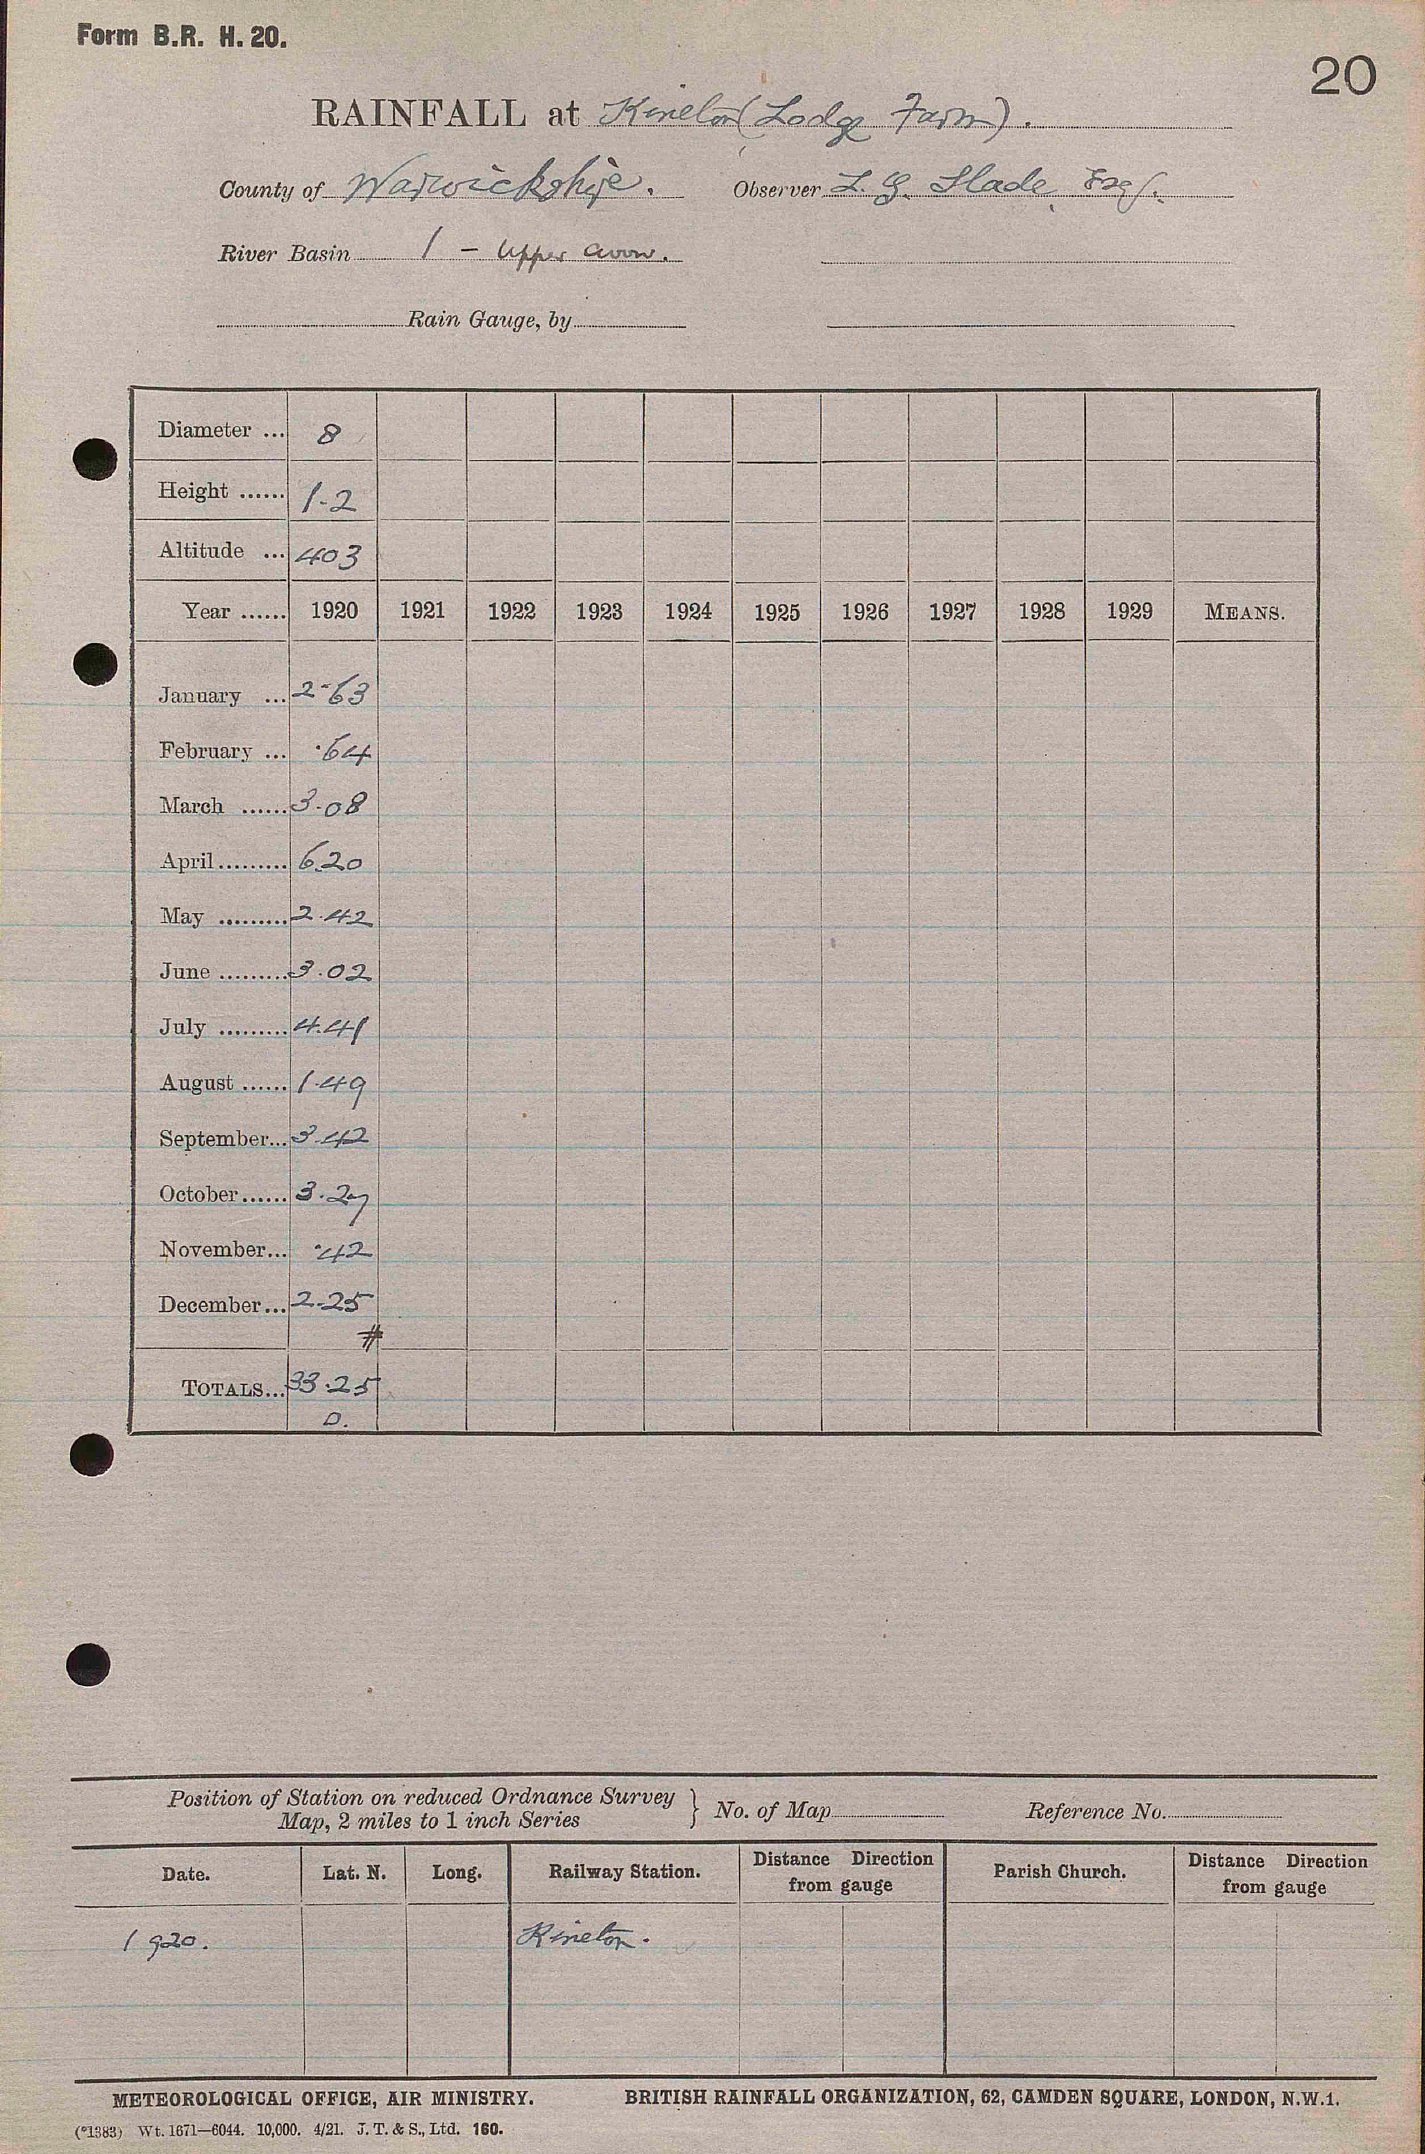 Form B.R. H. 20.
20
RAINFALL at Kineton (Lodge Farm).
County of Warwickshire. Observer L. G. Slade Esq.
River Basin 1 - Upper Avon.
Rain Gauge, by
Diameter ... 8
Height ...... 1-2
Altitude ... 403
Year ...... 1920 1921 1922 1923 1924 1925 1926 1927 1928 1929 MEANS.
January ... 2·63
February ... ·64
March ...... 3·08
April ......... 6.20
May ......... 2·42
June ......... 3·02
July ......... 4.41
August ...... 1·49
September... 3·42
October ...... 3·27
November... ·42
December... 2·25
#
TOTALS... 33·25
D.
Position of Station on reduced Ordnance Survey
Map, 2 miles to 1 inch Series } No. of Map Reference No.
Date. Lat. N. Long. Railway Station. Distance Direction from gauge Parish Church. Distance Direction from gauge
1920. Kineton.
METEOROLOGICAL OFFICE, AIR MINISTRY. BRITISH RAINFALL ORGANIZATION, 62, CAMDEN SQUARE, LONDON, N.W.1.
(*1383) Wt. 1671—6044. 10,000. 4/21. J. T. & S., Ltd. 160.